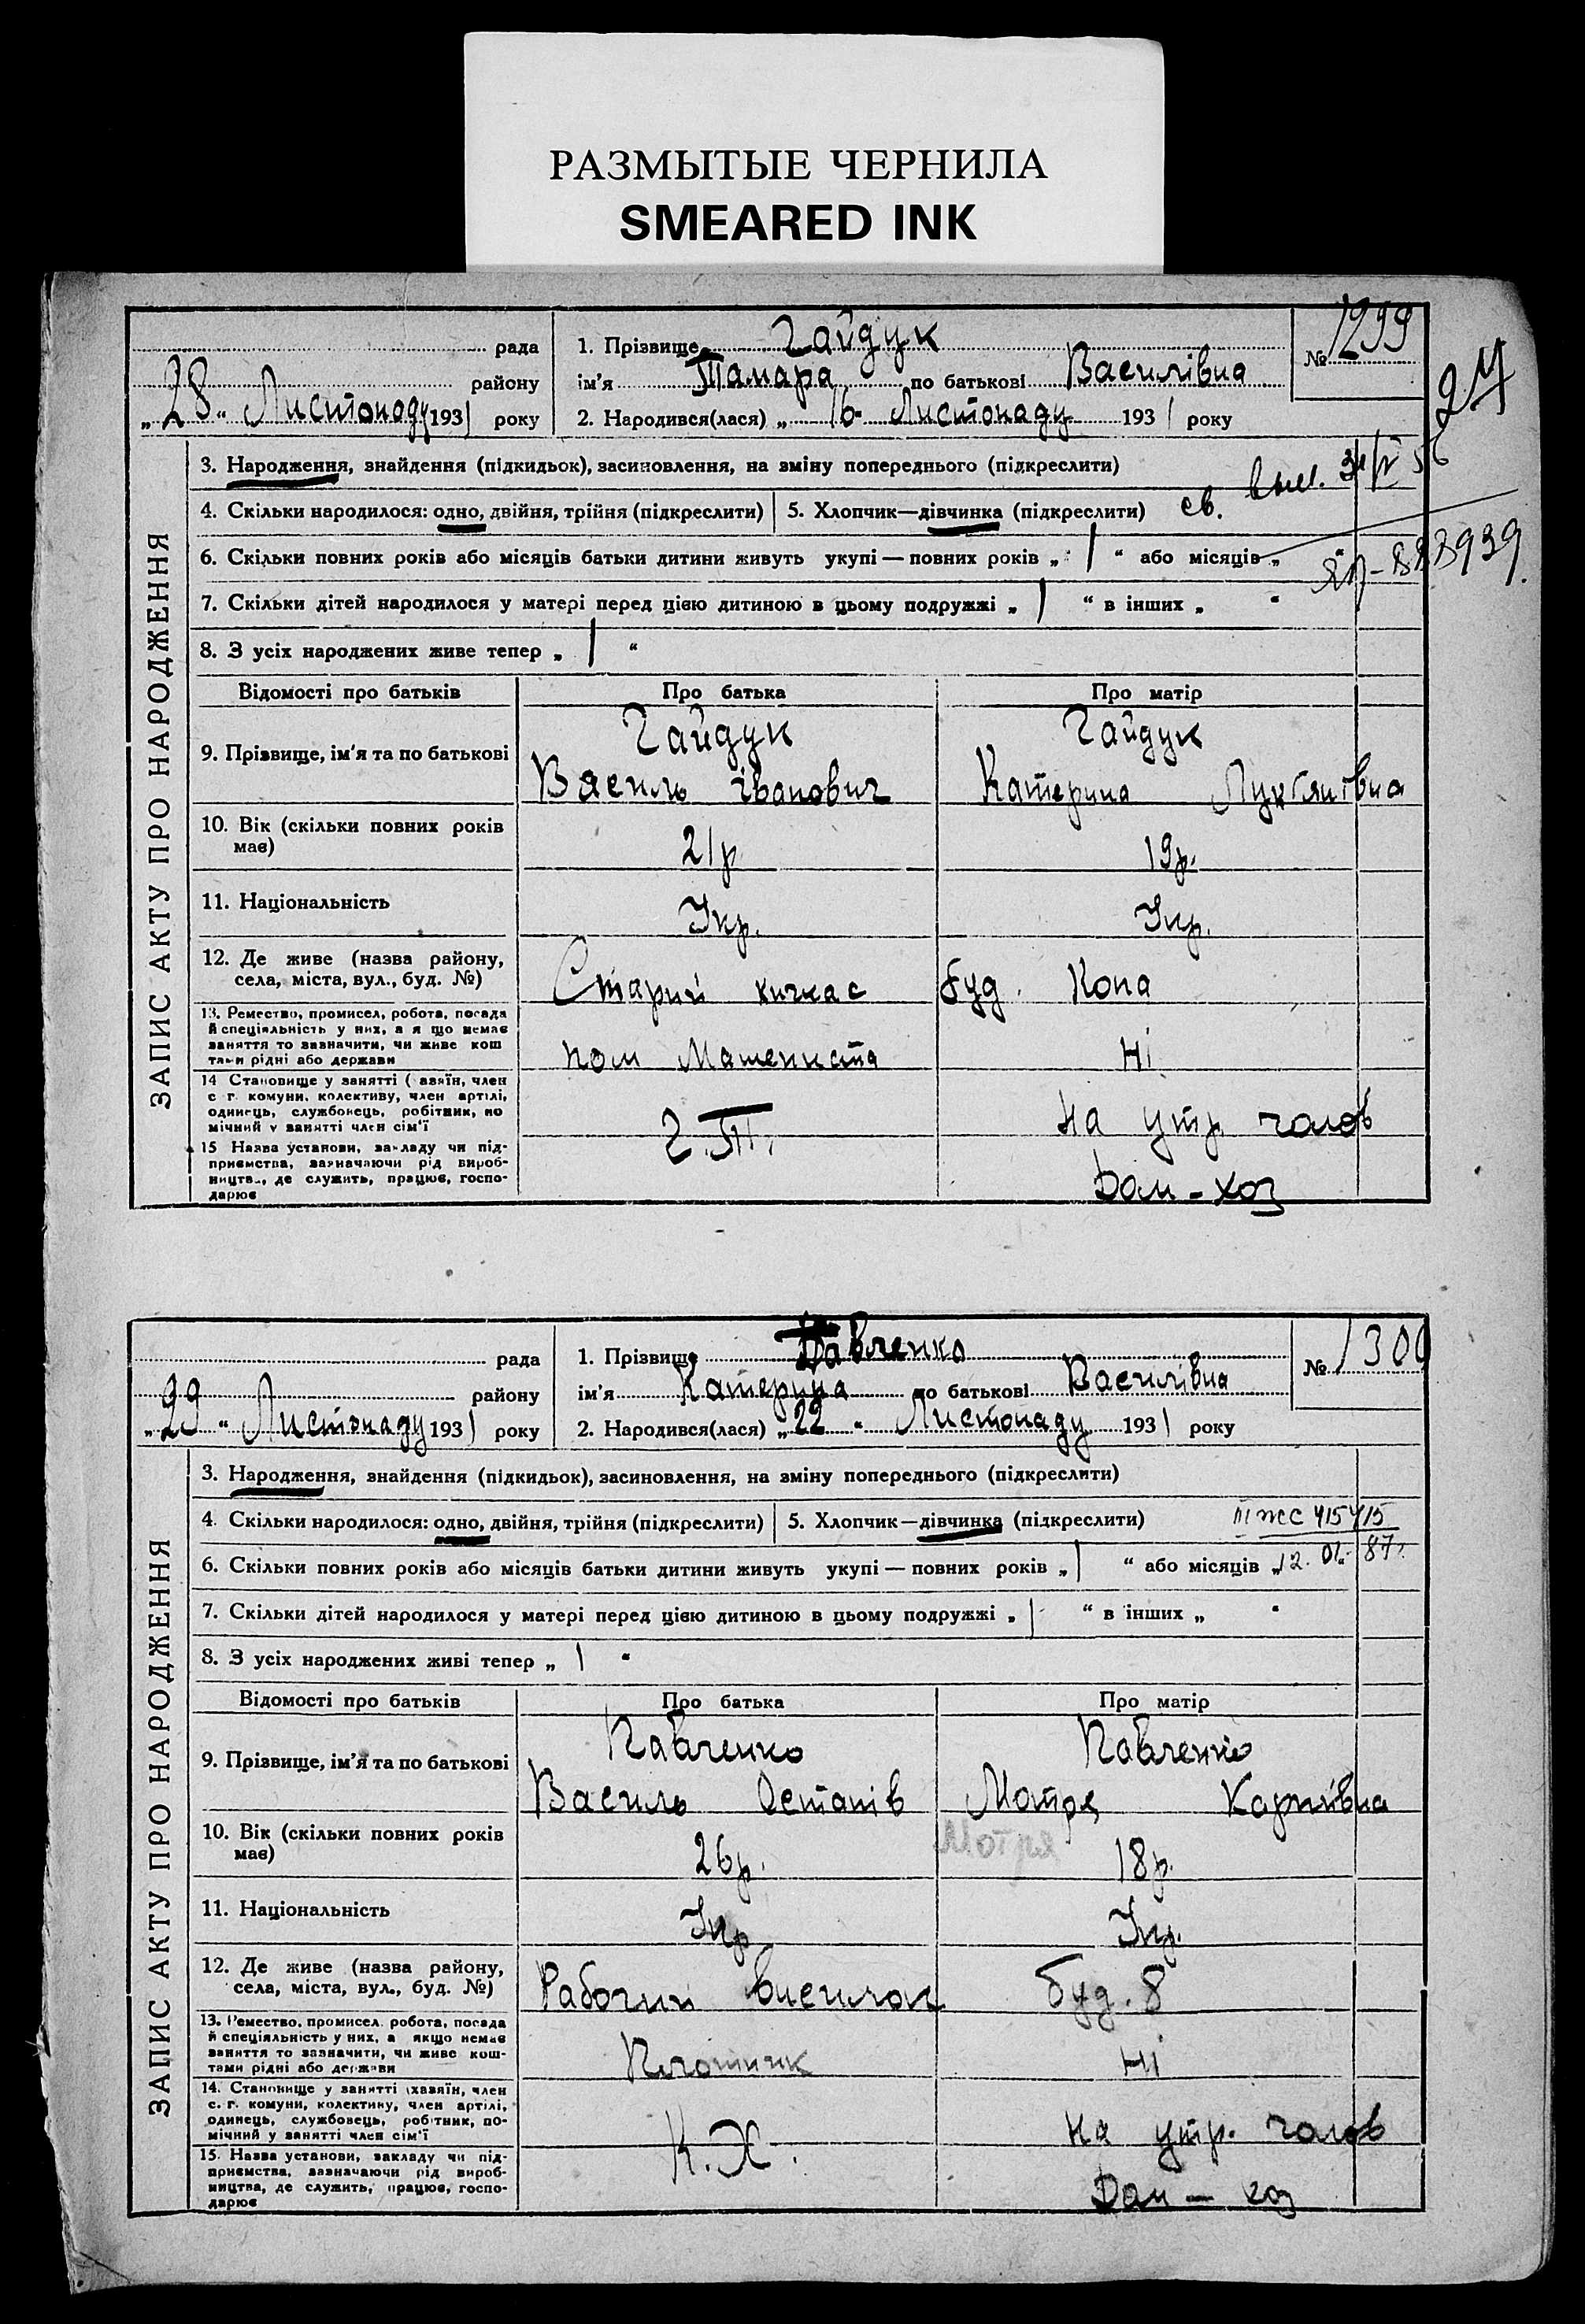 РАЗМЫТЫЕ ЧЕРНИЛА
SMEARED INK
рада
1. Прізвище Гайдук
№ 1299
району
ім'я Тамара по батькові Василівна
„28“ Листопаду 1931 року
2. Народився(лася) „16 Листопаду 1931 року
24
ЗАПИС АКТУ ПРО НАРОДЖЕННЯ
3. Народження, знайдення (підкидьок), засиновлення, на зміну попереднього (підкреслити)
4. Скільки народилося: одно, двійня, трійня (підкреслити)
5. Хлопчик—дівчинка (підкреслити)
св.
6. Скільки повних років або місяців батьки дитини живуть укупі — повних років „ 1 “ або місяців „
7. Скільки дітей народилося у матері перед цією дитиною в цьому подружжі „ 1 “ в інших „ “
8. З усіх народжених живе тепер „ 1 “
Відомості про батьків
Про батька
Про матір
9. Прізвище, ім'я та по батькові
Гайдук
Василь Іванович
Гайдук
Катерина Лук'янівна
10. Вік (скільки повних років
має)
21р
19р.
11. Національність
Укр.
Укр.
12. Де живе (назва району,
села, міста, вул., буд. №)
Старий кичкас
буд. Копа
13. Ремество, промисел, робота, посада
й спеціяльність у них, а я що немає
заняття то зазначити, чи живе кош
тами рідні або держави
пом Машениста
Ні
14 Становище у занятті (хазяїн, член
с г. комуни, колективу, член артілі,
одинець, службовець, робітник, по
мічний у занятті член сім'ї
на утр. голов
15 Назва установи, закладу чи під-
приємства, зазначаючи рід вироб-
ництва, де служить, працює, госпо-
дарює
Дом-хоз
рада
1. Прізвище Павленко
№ 1300
району
ім'я Катерина по батькові Василівна
„29“ Листопаду 1931 року
2. Народився(лася) „22“ Листопаду 1931 року
ЗАПИС АКТУ ПРО НАРОДЖЕННЯ
3. Народження, знайдення (підкидьок), засиновлення, на зміну попереднього (підкреслити)
4. Скільки народилося: одно, двійня, трійня (підкреслити)
5. Хлопчик—дівчинка (підкреслити)
6. Скільки повних років або місяців батьки дитини живуть укупі — повних років „ 1 “ або місяців „
7. Скільки дітей народилося у матері перед цією дитиною в цьому подружжі „ 1 “ в інших „ “
8. З усіх народжених живі тепер „ 1 “
Відомості про батьків
Про батька
Про матір
9. Прізвище, ім'я та по батькові
Павленко
Василь Остапів
Павленко
Мотря Карпівна
10. Вік (скільки повних років
має)
26р.
Мотря
18р.
11. Національність
Укр
Укр.
12. Де живе (назва району,
села, міста, вул., буд. №)
Рабочий висилок
буд. 8
13. Ремество, промисел. робота, посада
й спеціяльність у них, а якщо немає
заняття то зазначити, чи живе кош-
тами рідні або держави
Плотник
Ні
14. Становище у занятті (хазяїн, член
с. г. комуни, колективу, член артілі,
одинець, службовець, робітник, по-
мічний у занятті член сім'ї
К.Х.
на утр. голов
15. Назва установи, закладу чи під-
приємства, зазначаючи рід вироб-
ництва, де служить, працює, госпо-
дарює
Дом — хоз